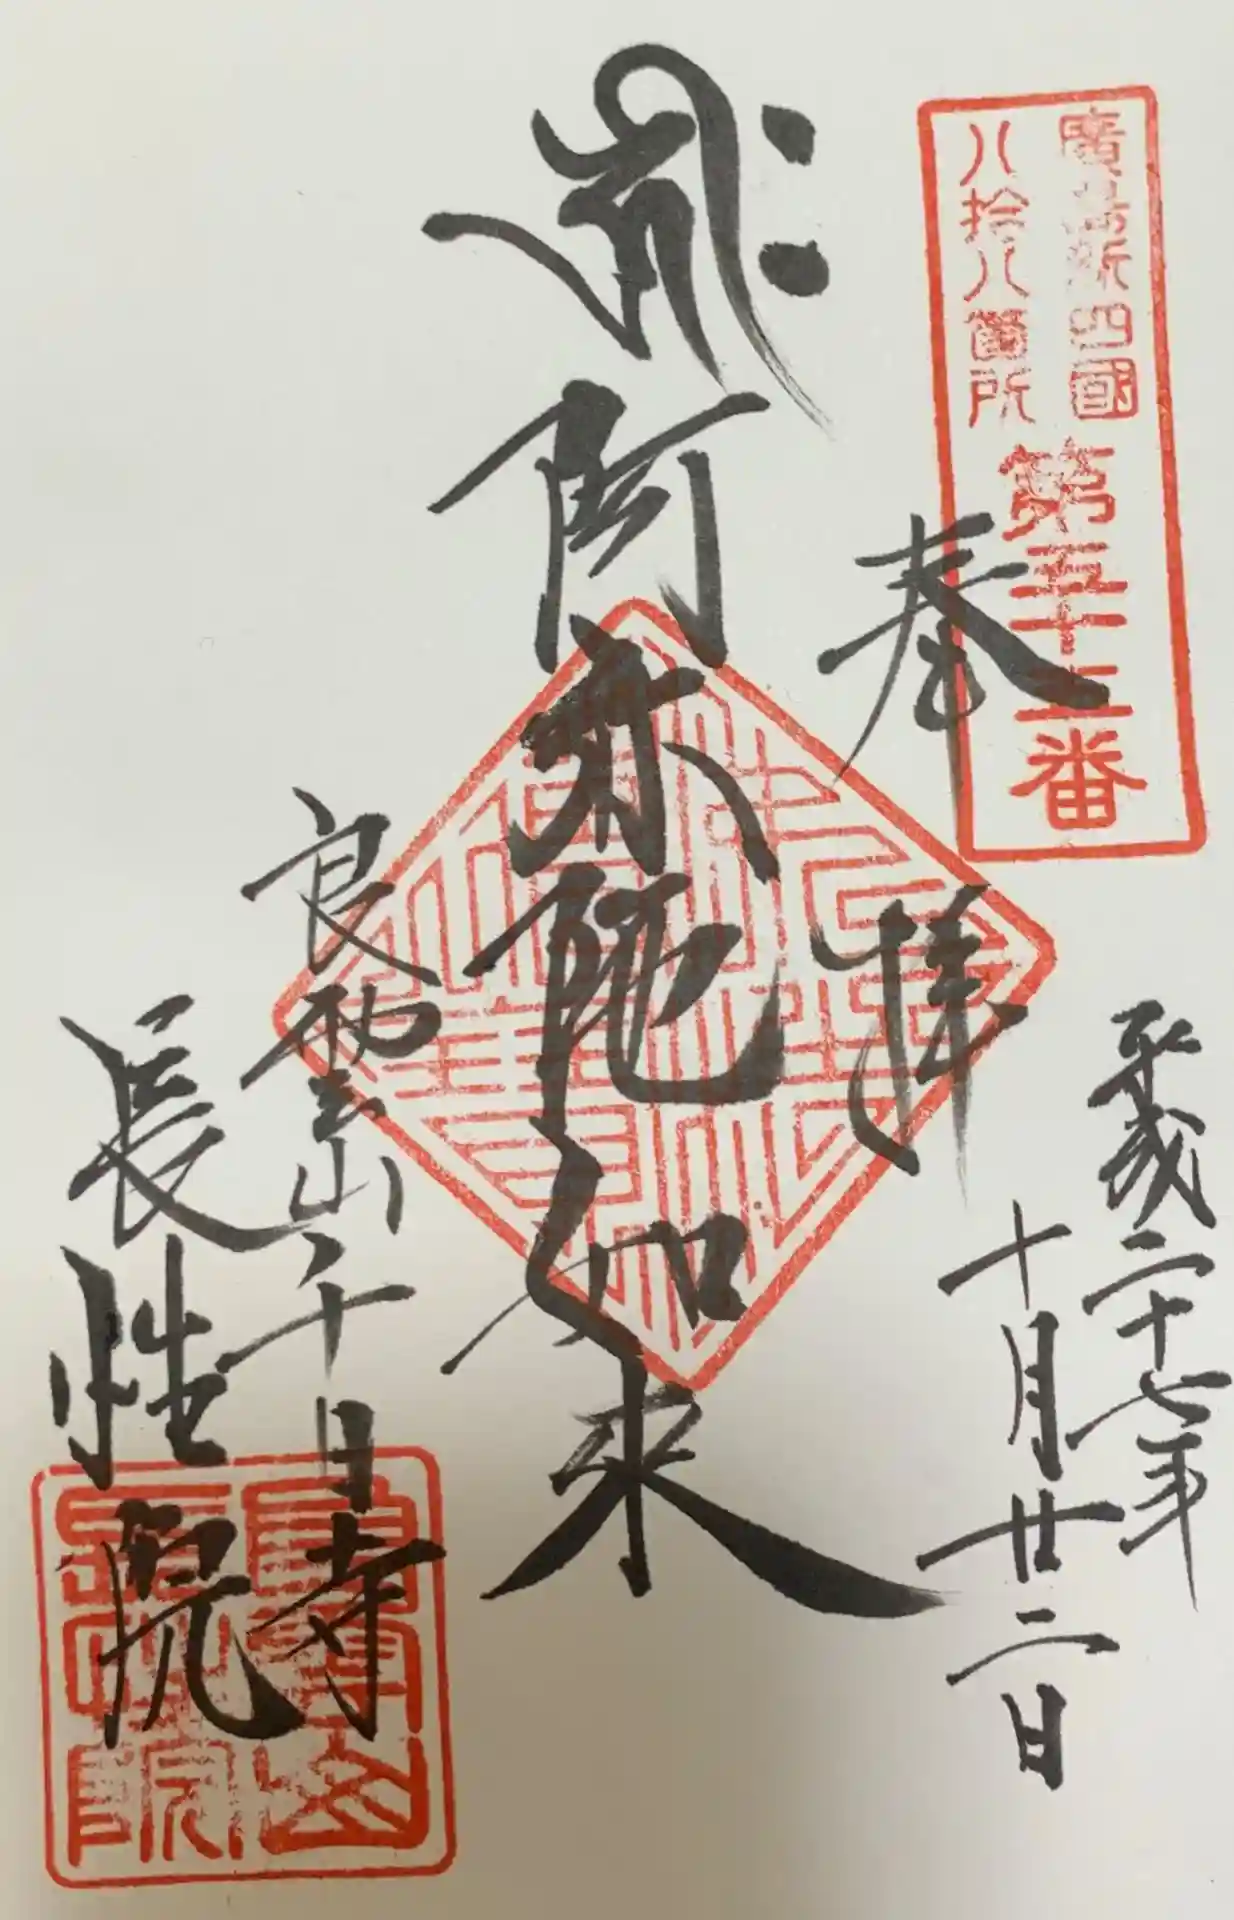 廣島新四國
八拾八箇所
第五十三番
奉拝
平成二十七年
十月廿二日
ह्रीः
阿弥陀如来
良雲山千日寺
長性院